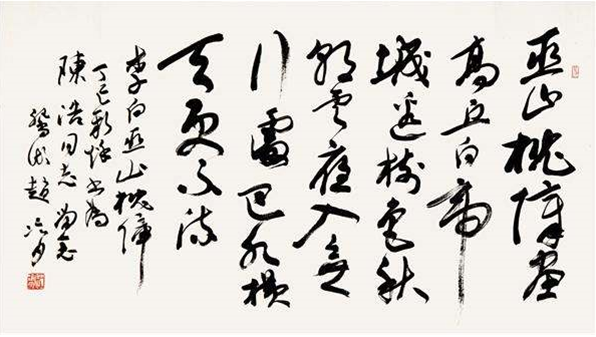 巫山枕障畫
高丘白帝
城邊樹色秋
朝雲夜入無
行處巴水橫
天更不流
李白巫山枕障
丁巳新秋書為
陳浩同志留念
趙冷月